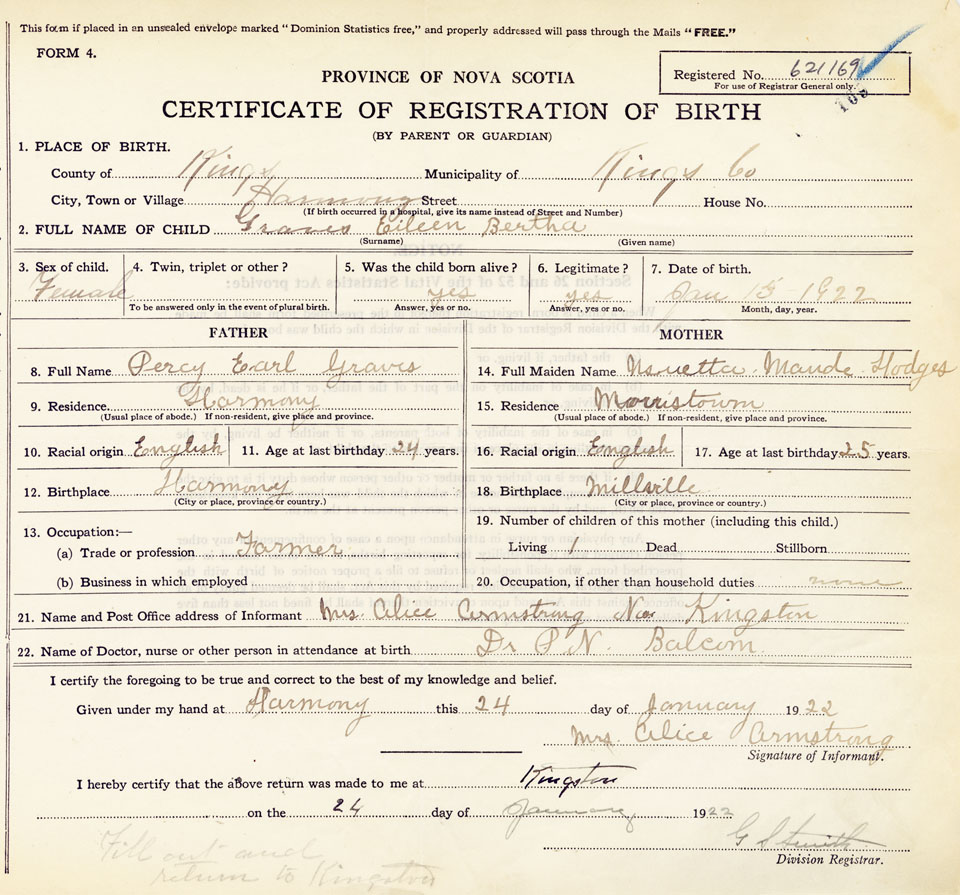 This form if placed in an unsealed envelope marked "Dominion Statistics free," and properly addressed will pass through the Mails "FREE."
FORM 4.
Registered No. 621169
For use of Registrar General only.
168
PROVINCE OF NOVA SCOTIA
CERTIFICATE OF REGISTRATION OF BIRTH
(BY PARENT OR GUARDIAN)
1. PLACE OF BIRTH.
County of Kings Municipality of Kings Co
City, Town or Village Harmony Street House No.
(If birth occurred in a hospital, give its name instead of Street and Number)
2. FULL NAME OF CHILD Graves Eileen Bertha
(Surname) (Given name)
3. Sex of child. 4. Twin, triplet or other? 5. Was the child born alive? 6. Legitimate? 7. Date of birth.
Female yes yes Jan 15 - 1922
To be answered only in the event of plural birth. Answer, yes or no. Answer, yes or no. Month, day, year.
FATHER MOTHER
8. Full Name Percy Earl Graves 14. Full Maiden Name Maude Hodges
9. Residence. Harmony 15. Residence Morristown
(Usual place of abode.) If non-resident, give place and province. (Usual place of abode.) If non-resident, give place and province.
10. Racial origin English 11. Age at last birthday 24 years. 16. Racial origin English 17. Age at last birthday 25 years.
12. Birthplace Harmony 18. Birthplace Millville
(City or place, province or country.) (City or place, province or country.)
13. Occupation:— 19. Number of children of this mother (including this child.)
(a) Trade or profession Farmer Living 1 Dead Stillborn
(b) Business in which employed 20. Occupation, if other than household duties none
21. Name and Post Office address of Informant Mrs. Alice Armstrong Kingston
22. Name of Doctor, nurse or other person in attendance at birth Dr P N. Balcom
I certify the foregoing to be true and correct to the best of my knowledge and belief.
Given under my hand at Harmony this 24 day of January 1922
Mrs. Alice Armstrong
Signature of Informant.
I hereby certify that the above return was made to me at Kingston
on the 24 day of January 1922
G S Smith
Division Registrar.
Fill out and
return to Kingston